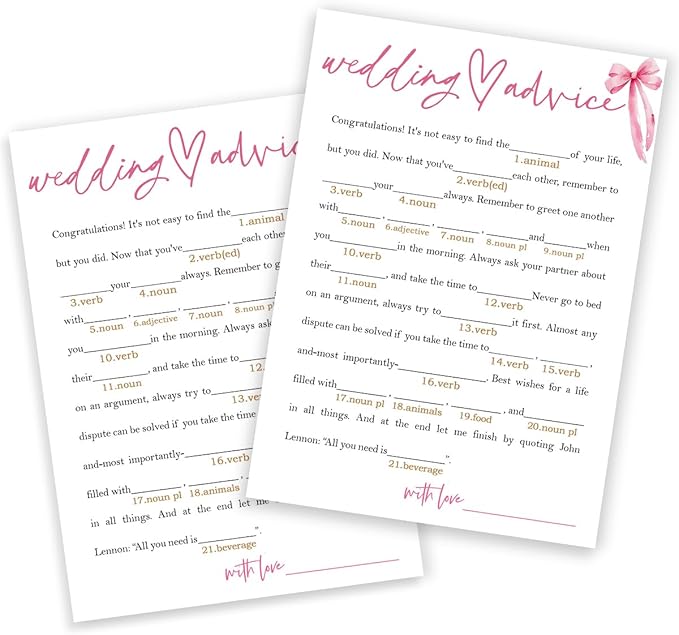 wedding♡advice
Congratulations! It's not easy to find the__________of your life,
1.animal
but you did. Now that you've__________each other, remember to
2.verb(ed)
________your________always. Remember to greet one another
3.verb 4.noun
with_______, _______, _______, _______and_______when
5.noun 6.adjective 7.noun 8.noun pl 9.noun pl
you__________in the morning. Always ask your partner about
10.verb
their________, and take the time to__________Never go to bed
11.noun 12.verb
on an argument, always try to__________it first. Almost any
13.verb
dispute can be solved if you take the time to_______, _______,
14.verb 15.verb
and-most importantly-____________. Best wishes for a life
16.verb
filled with_______, _______, _______, and_________
17.noun pl 18.animals 19.food 20.noun pl
in all things. And at the end let me finish by quoting John
Lennon: “All you need is_________”.
21.beverage
with love______________
wedding♡advic
Congratulations! It's not easy to find the__________
1.animal
but you did. Now that you've__________each other
2.verb(ed)
________your________always. Remember to
3.verb 4.noun
with_______, _______, _______, _______
5.noun 6.adjective 7.noun 8.noun pl
you__________in the morning. Always ask
10.verb
their________, and take the time to________
11.noun 12.
on an argument, always try to________
13.ve
dispute can be solved if you take the time
and-most importantly-________
16.verb
filled with_______, _______,
17.noun pl 18.animals
in all things. And at the end let me
Lennon: “All you need is_________”.
21.beverage
with love______________